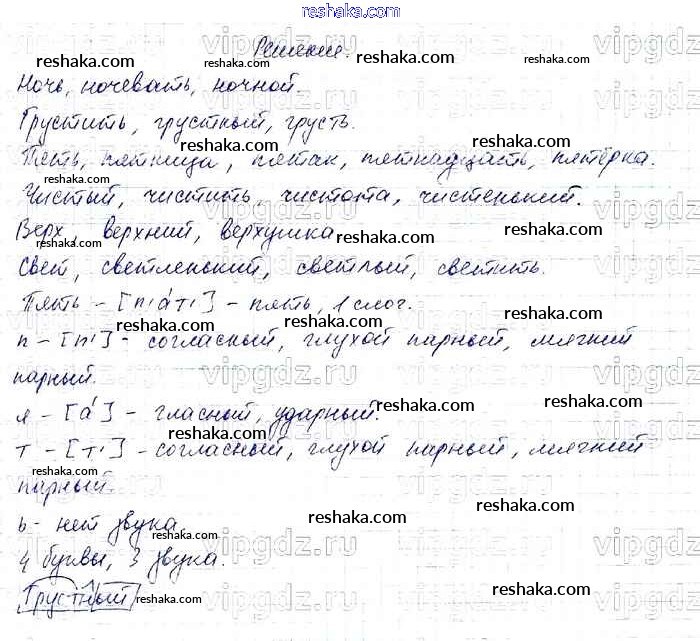 reshaka.com
Решение. reshaka.com vipgdz.ru
reshaka.com reshaka.com
Ночь, ночевать, ночной.
reshaka.com
Грустить, грустный, грусть.
reshaka.com
Пять, пятница, пятак, пятнадцать, пятёрка.
reshaka.com reshaka.com
Чистый, чистить, чистота, чистенький.
reshaka.com
Верх, верхний, верхушка reshaka.com
reshaka.com reshaka.com
Свет, светленький, светлый, светить.
reshaka.com reshaka.com
Пять – [п'а́т'] – пять, 1 слог.
reshaka.com reshaka.com reshaka.com
п – [п'] – согласный, глухой парный, мягкий
reshaka.com
парный.
reshaka.com
я – [а́] – гласный, ударный.
reshaka.com reshaka.com
т – [т'] – согласный, глухой парный, мягкий
reshaka.com reshaka.com
парный.
reshaka.com
ь – нет звука.
reshaka.com
4 буквы, 3 звука.
reshaka.com
Грустный reshaka.com reshaka.com